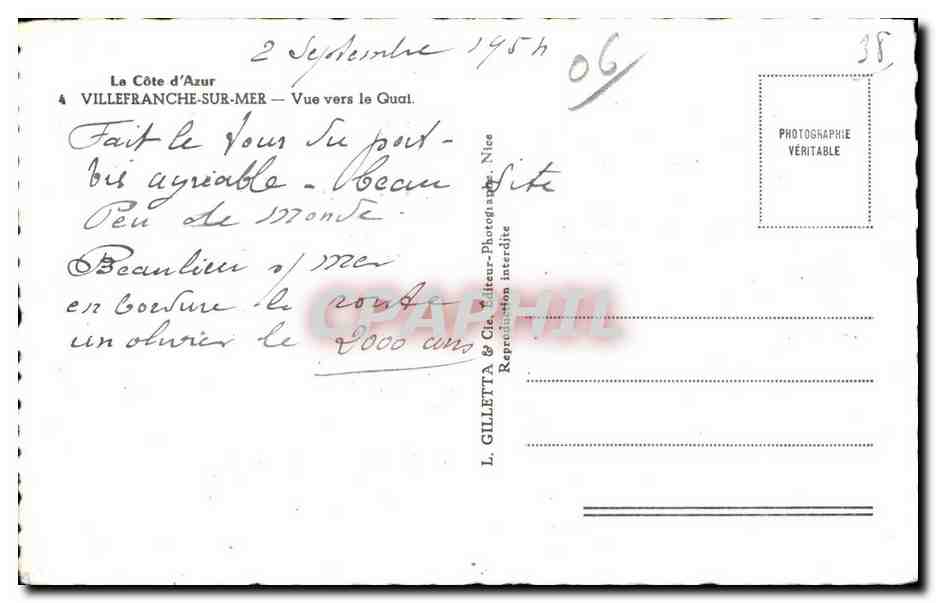 2 Septembre 1954
06
38
La Côte d'Azur
4 VILLEFRANCHE-SUR-MER — Vue vers le Quai.
PHOTOGRAPHIE
VÉRITABLE
Fait le tour du port -
très agréable - beau site
Peu de monde.
Beaulieu s/ mer
en bordure de route
un olivier de 2000 ans
CPAPHIL
L. GILLETTA & Cie, Éditeur-Photographe, Nice
Reproduction interdite